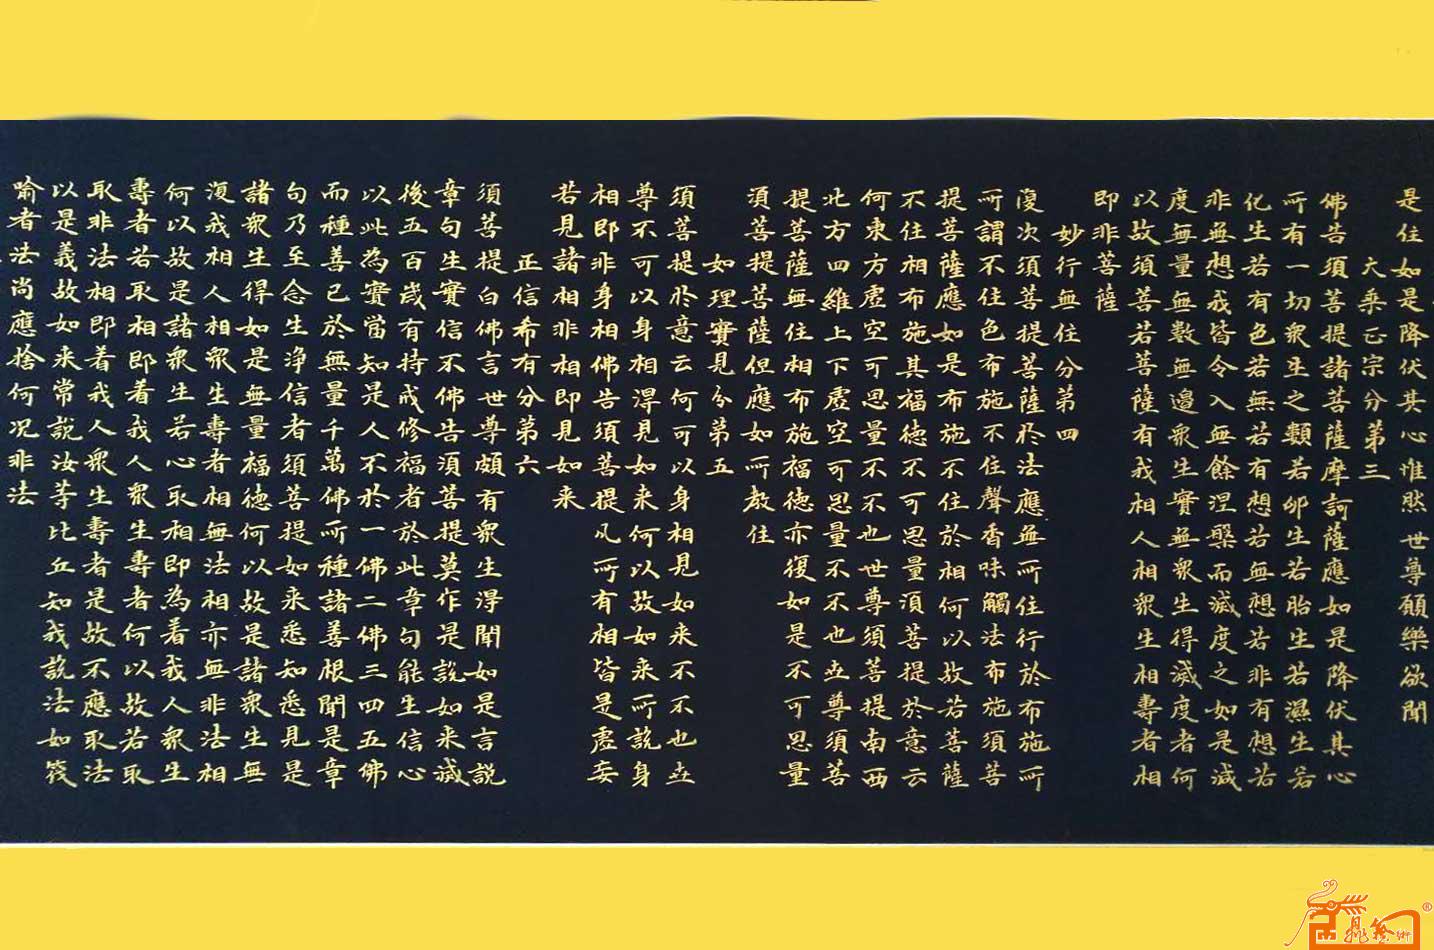 是住如是降伏其心惟然世尊願樂欲聞
大乘正宗分第三
佛告須菩提諸菩薩摩訶薩應如是降伏其心
所有一切衆生之類若卵生若胎生若濕生若
化生若有色若無若有想若無想若非有想若
非無想我皆令入無餘涅槃而滅度之如是滅
度無量無數無邊衆生實無衆生得滅度者何
以故須菩若菩薩有我相人相衆生相壽者相
即非菩薩
妙行無住分第四
復次須菩提菩薩於法應無所住行於布施所
所謂不住色布施不住聲香味觸法布施須菩
提菩薩應如是布施不住於相何以故若菩薩
不住相布施其福德不可思量須菩提於意云
何東方虛空可思量不不也世尊須菩提南西
北方四維上下虛空可思量不不也世尊須菩
提菩薩無住相布施福德亦復如是不可思量
須菩提菩薩但應如所教住
如理實見分第五
須菩提於意云何可以身相見如来不不也世
尊不可以身相得見如来何以故如来所說身
相即非身相佛告須菩提凡所有相皆是虛妄
若見諸相非相即見如来
正信希有分第六
須菩提白佛言世尊頗有衆生得聞如是言說
章句生實信不佛告須菩提莫作是說如来滅
後五百歲有持戒修福者於此章句能生信心
以此為實當知是人不於一佛二佛三四五佛
而種善已於無量千萬佛所種諸善根聞是章
句乃至念生浄信者須菩提如来悉知悉見是
諸衆生得如是無量福德何以故是諸衆生無
復我相人相衆生壽者相無法相亦無非法相
何以故是諸衆生若心取相即為着我人衆生
壽者若取相即着我人衆生壽者何以故若取
取非法相即着我人衆生壽者是故不應取法
以是義故如来常說汝等比丘知我說法如筏
喻者法尚應捨何况非法